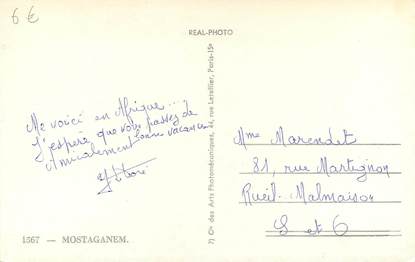 6€
REAL-PHOTO
Me voici en Afrique...
J'espère que vous passez de
bonnes vacances
Amicalement
Mme Marendet
81, rue Martignon
Rueil-Malmaison
S et O
7) Cie des Arts Photomécaniques, 44, rue Letellier, Paris-15e
1567 — MOSTAGANEM.